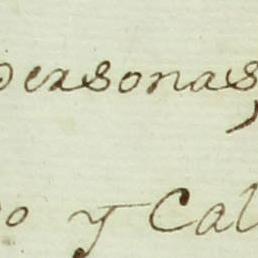 personas,
o y Cal